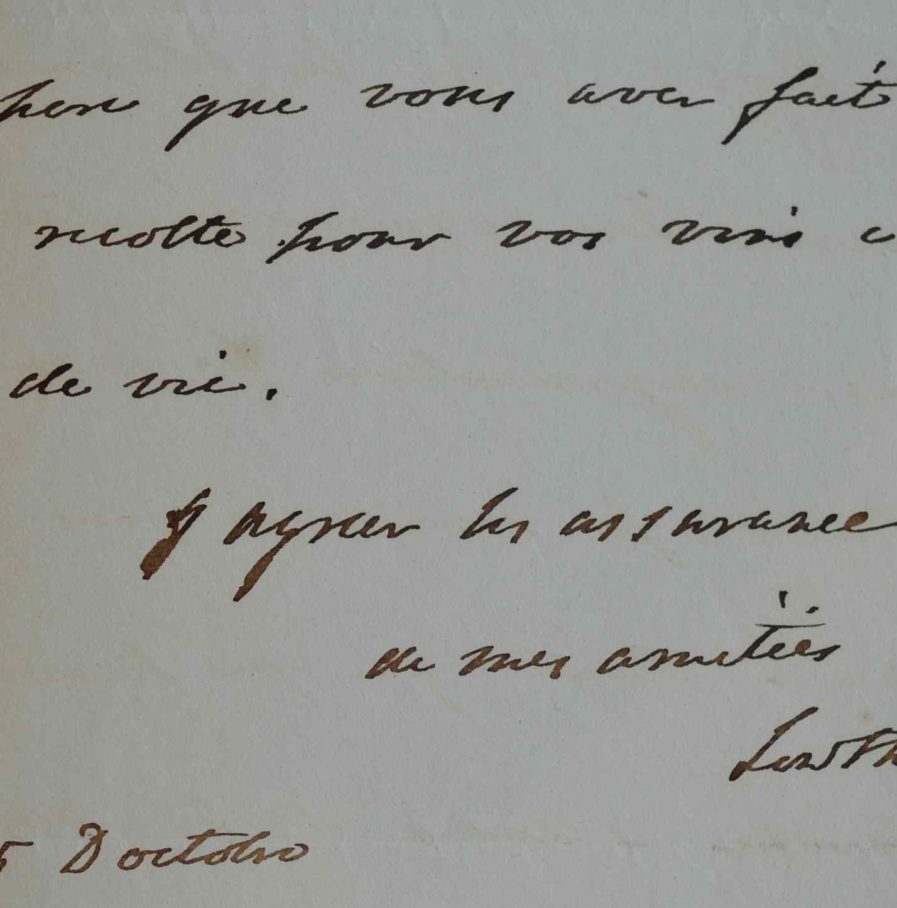 que vous avez fait
recolte pour vos vins
de vie.
agreer les assurance
de mes amitiés
Lowth
5 D octobre